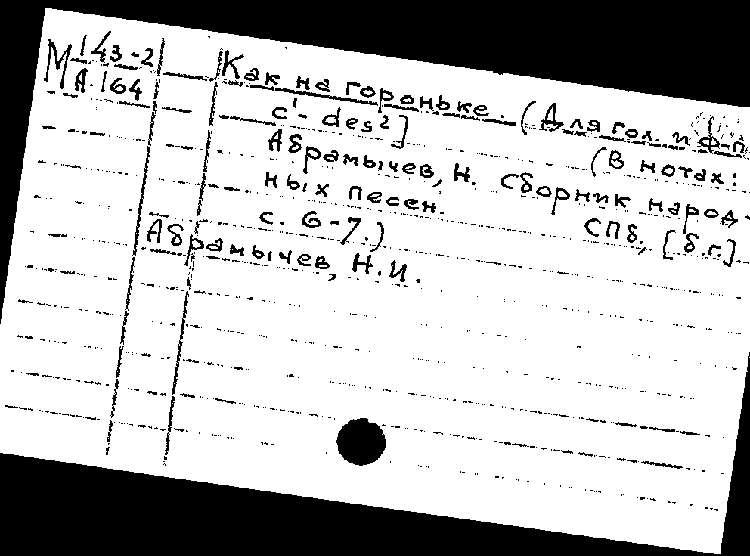 М 143-2
А 164
Как на гороньке. (Для гол. и ф-п.
c¹- des²]
(В нотах:
Абрамычев, Н. Сборник народ-
ных песен.
СПб, [б.г.]
с. 6-7.)
Абрамычев, Н.И.